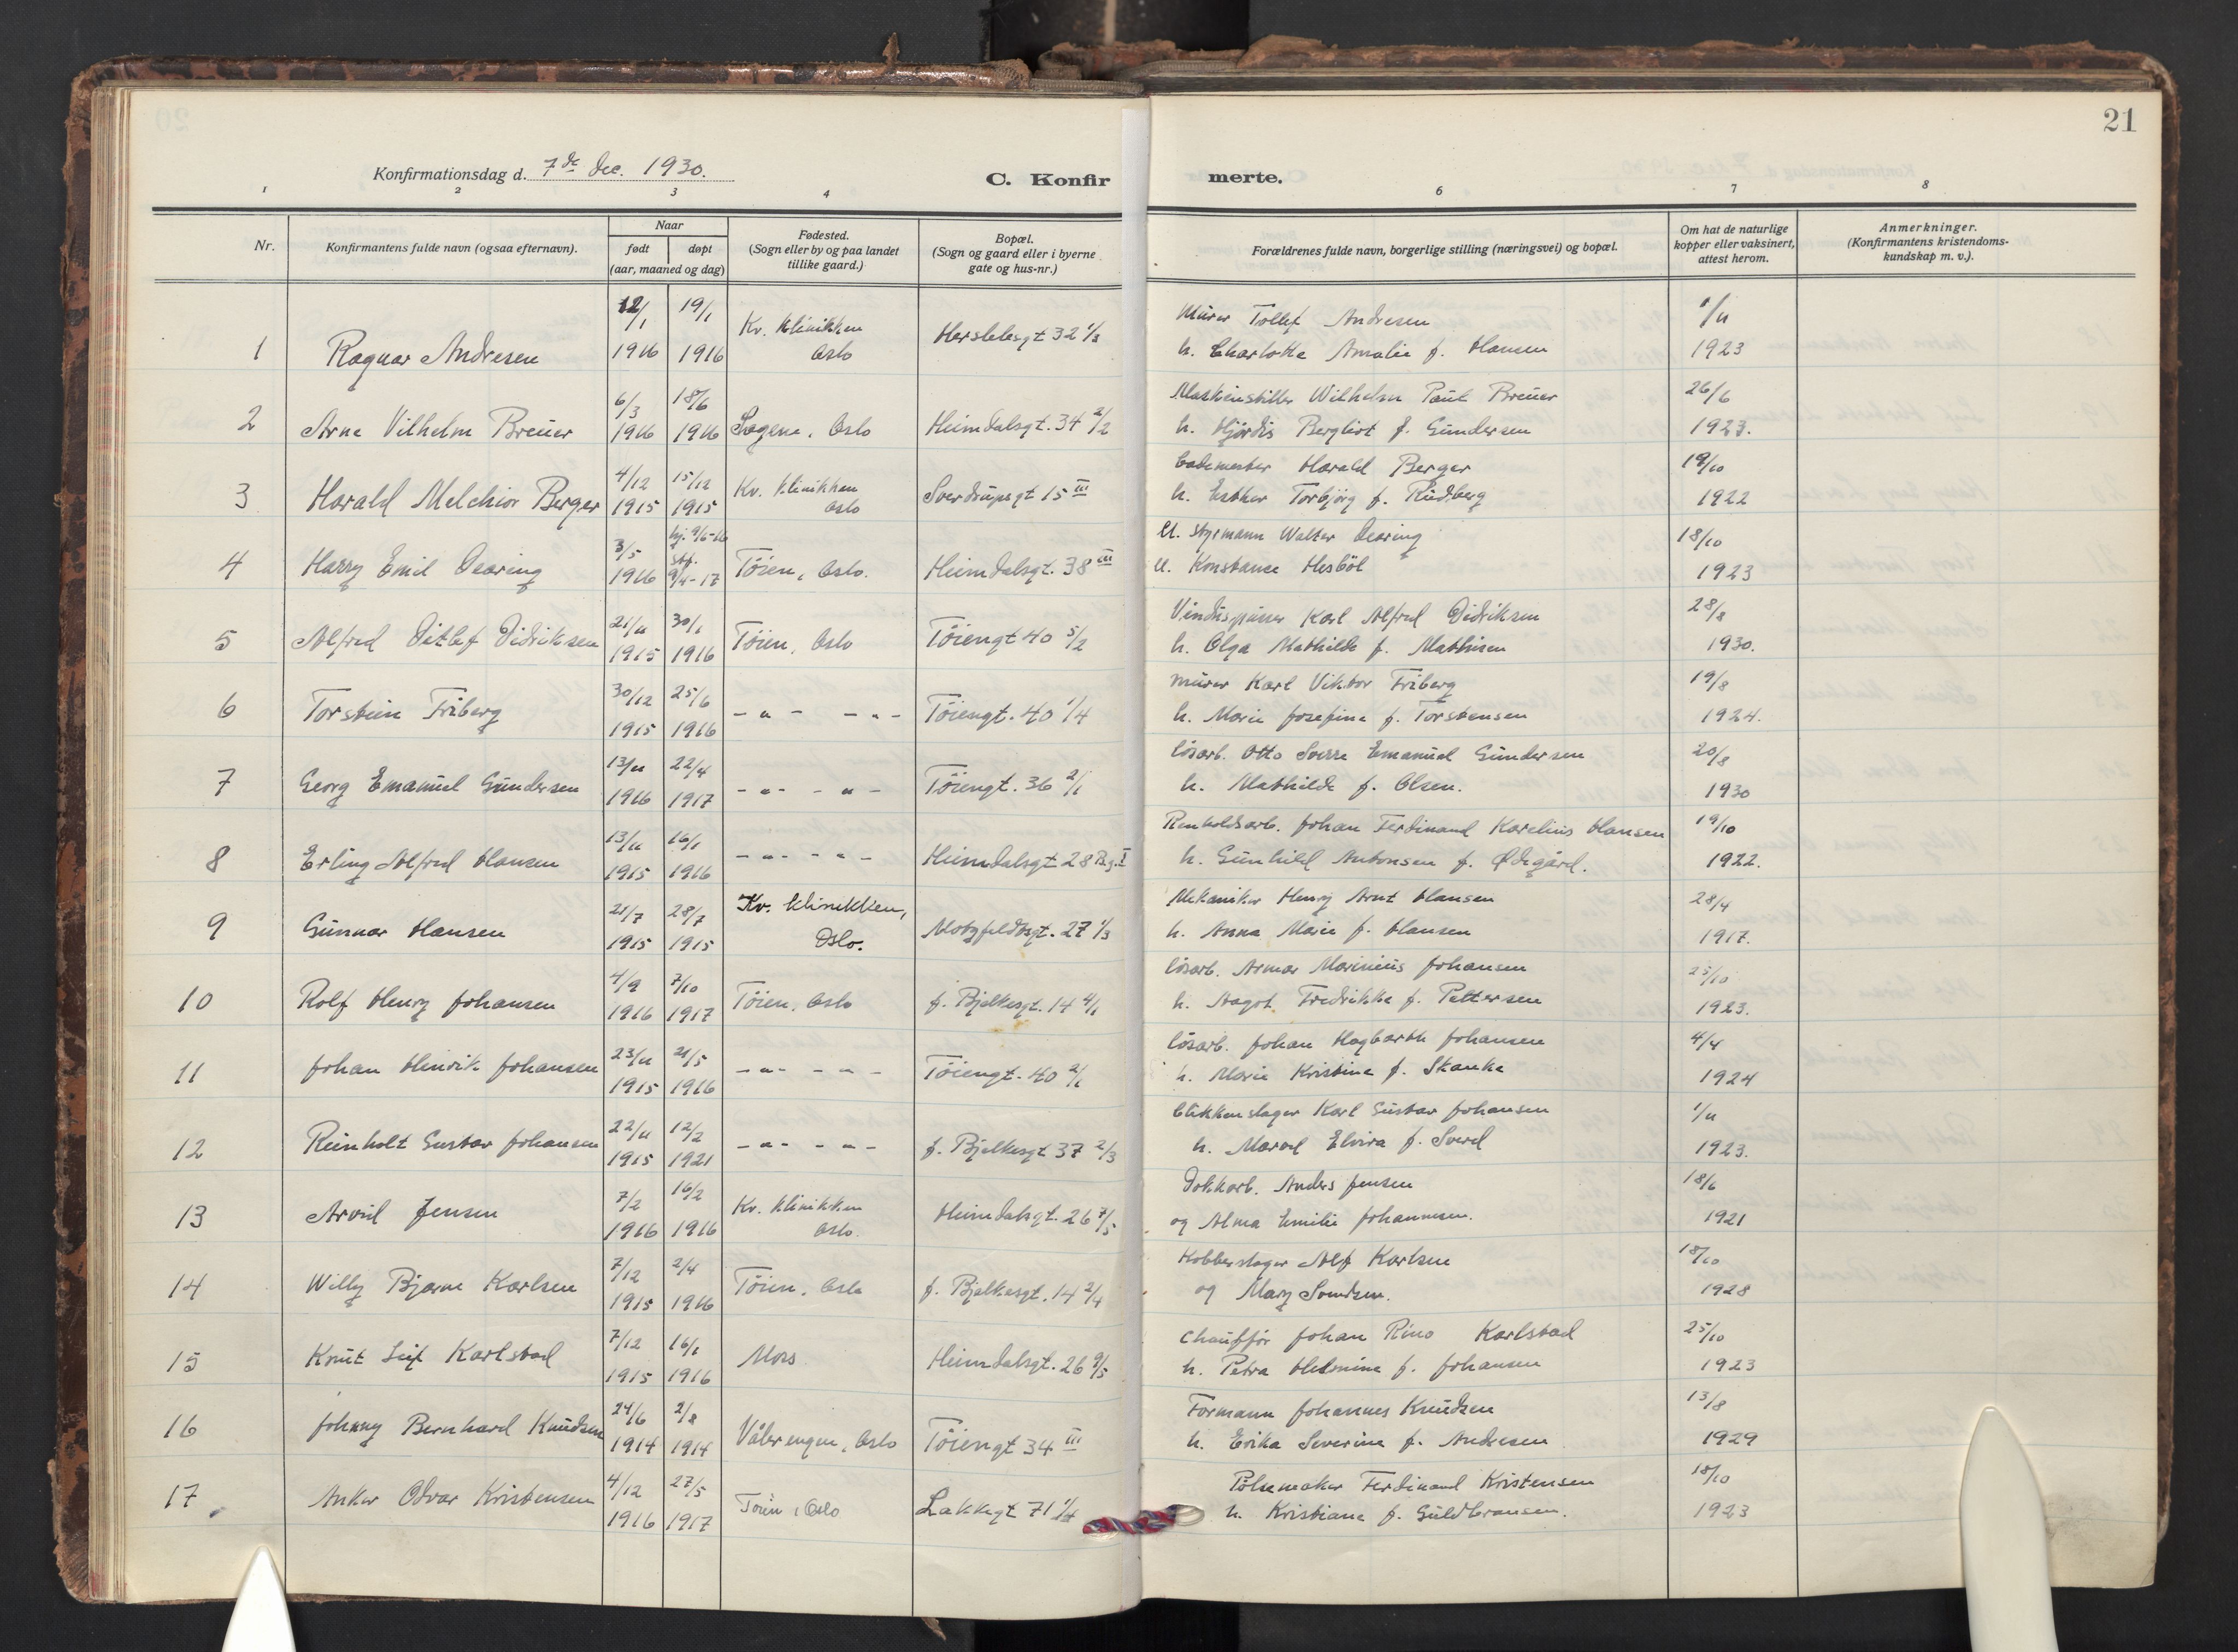 21
Konfirmationsdag d. 7de Dec. 1930.
C. Konfirmerte.
1 2 3 4 6 7 8
Nr.
Konfirmantens fulde navn (ogsaa efternavn).
Naar
født døpt
(aar, maaned og dag)
Fødested.
(Sogn eller by og paa landet
tillike gaard.)
Bopæl.
(Sogn og gaard eller i byerne
gate og hus-nr.)
Forældrenes fulde navn, borgerlige stilling (næringsvei) og bopæl.
Om hat de naturlige
kopper eller vaksinert,
attest herom.
Anmerkninger.
(Konfirmantens kristendoms-
kundskap m. v.).
12/1 19/1 Kv. klinikken Herslebsgt 32 1/3 Murer Tollef Andresen 1/11
1 Ragnar Andresen 1916 1916 Oslo h. Charlotte Amalie f. Hansen 1923
6/3 18/6 Maskinstiller Wilhelm Paul Breuer 26/6
2 Arne Vilhelm Breuer 1916 1916 Sagene, Oslo Heimdalsgt. 34 2/2 h. Hjördis Bergliot f. Gundersen 1923.
4/12 15/12 Kv. klinikken Bademester Harald Berger 19/10
3 Harald Melchior Berger 1915 1915 Oslo Sverdrupsgt 15 III h. Esther Torbjörg f. Rudberg 1922
3/5 hj. 9/6-16 U. Styrmann Walter Dearing 18/10
4 Harry Emil Dearing 1916 stf. 9/4-17 Töien, Oslo. Heimdalsgt. 38 III U. Konstance Hesböl 1923
21/11 30/1 Vinduspusser Karl Alfred Didriksen 28/8
5 Alfred Ditlef Didriksen 1915 1916 Töien, Oslo Töiengt 40 5/2 h. Olga Mathilde f. Mathisen 1930.
30/12 25/6 Murer Karl Viktor Friberg 19/8
6 Torstein Friberg 1915 1916 - " - - " - Töiengt. 40 1/4 h. Marie Josefine f. Torstensen 1924.
13/11 22/4 Lösarb. Otto Sverre Emanuel Gundersen 20/8
7 Georg Emanuel Gundersen 1916 1917 - " - - " - Töiengt. 36 2/1 h. Mathilde f. Olsen. 1930
13/11 16/1 Renholdsarb. Johan Ferdinand Karelius Hansen 19/10
8 Erling Alfred Hansen 1915 1916 - " - - " - Heimdalsgt 28 Bg. I h. Gunhild Antonsen f. Ødegård. 1922.
21/7 28/7 Kv. klinikken, Mekaniker Henry Arnt Hansen 28/4
9 Gunnar Hansen 1915 1915 Oslo. Motzfeldtsgt. 27 1/3 h. Anna Marie f. Hansen 1917.
4/9 7/10 Lösarb. Armar Marinius Johansen 25/10
10 Rolf Henry Johansen 1916 1917 Töien, Oslo J. Bjelkesgt. 14 4/1 h. Aagot Fredrikke f. Pettersen 1923.
23/11 21/5 Lösarb. Johan Hagbarth Johansen 4/4
11 Johan Henrik Johansen 1915 1916 - " - - " - Töiengt. 40 2/1 h. Marie Kristine f. Skanke 1924
22/11 12/2 Blikkenslager Karl Gustav Johansen 1/11
12 Reinholt Gustav Johansen 1915 1921 - " - - " - J. Bjelkesgt 37 2/3 h. Elvira f. 1923.
7/2 16/2 Kv. klinikken Dokkarb. Anders Jensen 18/6
13 Arvid Jensen 1916 1916 Oslo. Heimdalsgt. 26 7/5 og Alma Emilie Johannesen. 1921
7/12 2/4 Kobberslager Alf Karlsen 18/10
14 Willy Bjarne Karlsen 1915 1916 Töien, Oslo J. Bjelkesgt. 14 2/4 og Mary Svendsen. 1928
7/12 16/1 Chaufför Johan Rino Karlstad 25/10
15 Knut Leif Karlstad 1915 1916 Moss Heimdalsgt. 26 9/5 h. Petra Helmine f. Johansen 1923
24/6 2/8 Formann Johannes Knudsen 13/8
16 Johnny Bernhard Knudsen 1914 1914 Vålerengen, Oslo Töiengt 34 III h. Erika Severine f. Andresen 1929
4/12 27/5 Pölsemaker Ferdinand Kristensen 18/10
17 Anker Odvar Kristensen 1916 1917 Töien, Oslo Lakkegt 71 1/4 h. Kristiane f. Guldbransen. 1923